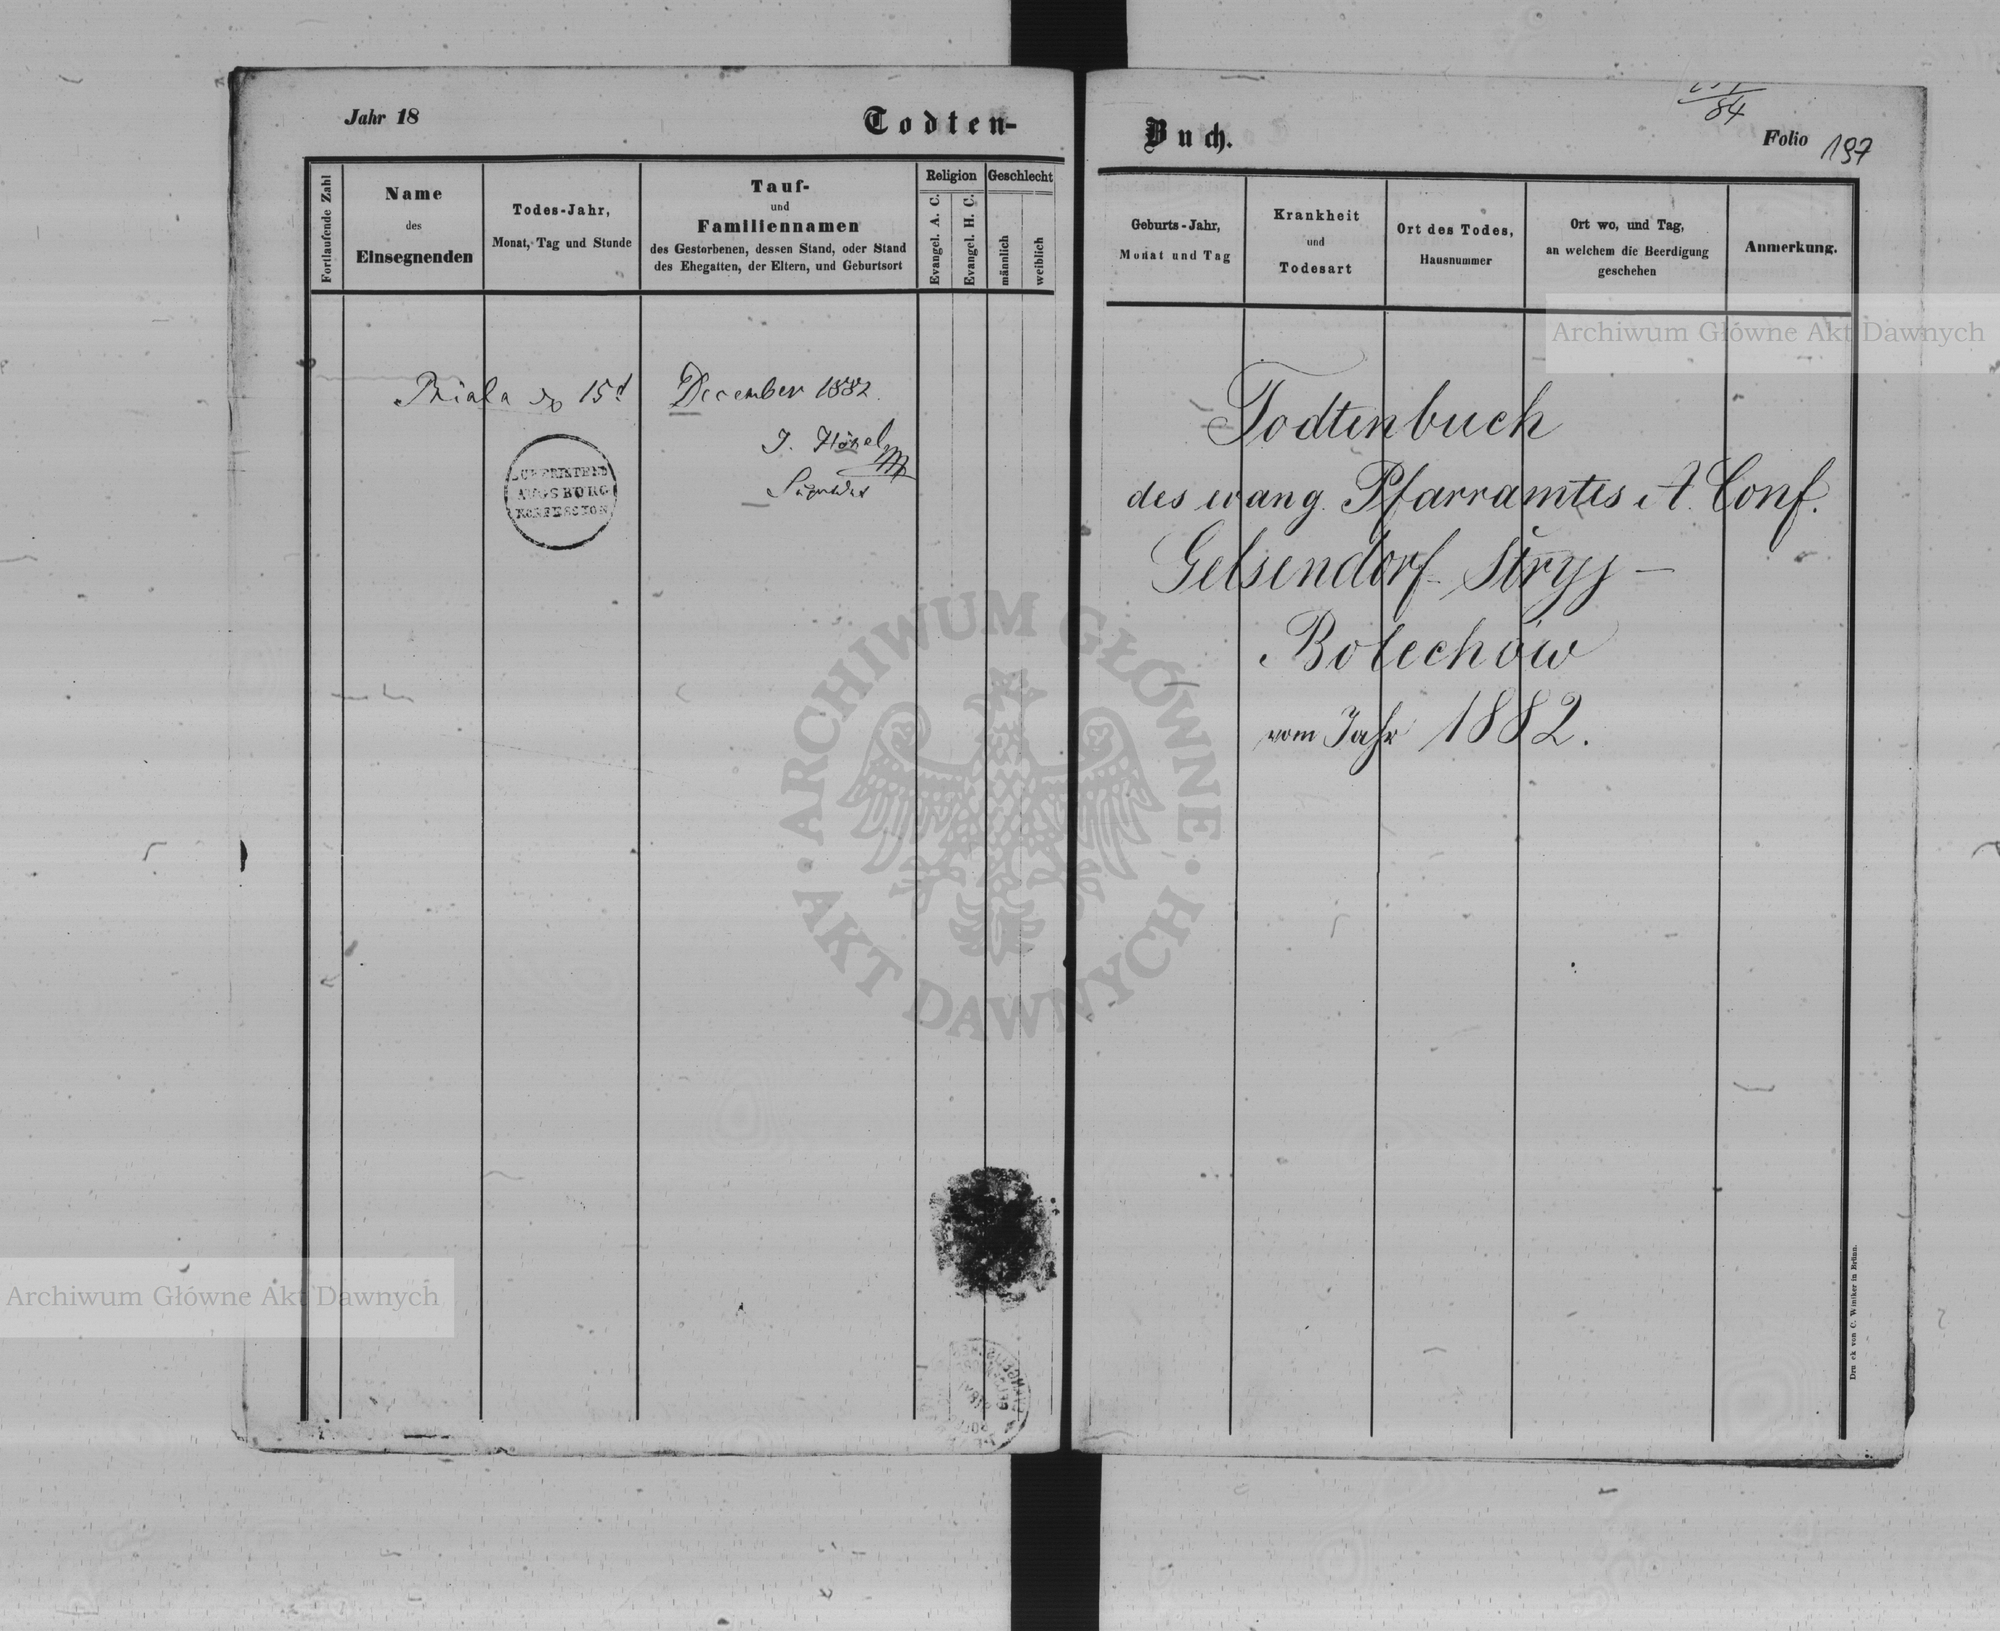 Jahr 18
Todten-
Fortlaufende Zahl
Name
des
Einsegnenden
Todes-Jahr,
Monat, Tag und Stunde
Tauf-
und
Familiennamen
des Gestorbenen, dessen Stand, oder Stand
des Ehegatten, der Eltern, und Geburtsort
Religion
Evangel. A. C.
Evangel. H. C.
Geschlecht
männlich
weiblich
Biala 15 December 1882.
AUGSBURG
Buch.
84
Folio 197
Geburts-Jahr,
Monat und Tag
Krankheit
und
Todesart
Ort des Todes,
Hausnummer
Ort wo, und Tag,
an welchem die Beerdigung
geschehen
Anmerkung.
Todtenbuch
des evang. Pfarramtes A. Conf.
Gelsendorf - Stryj -
Bolechów
vom Jahr 1882.
Druck von C. Winiker in Brünn.
Archiwum Główne Akt Dawnych
ARCHIWUM GŁÓWNE
AKT DAWNYCH
Archiwum Główne Akt Dawnych